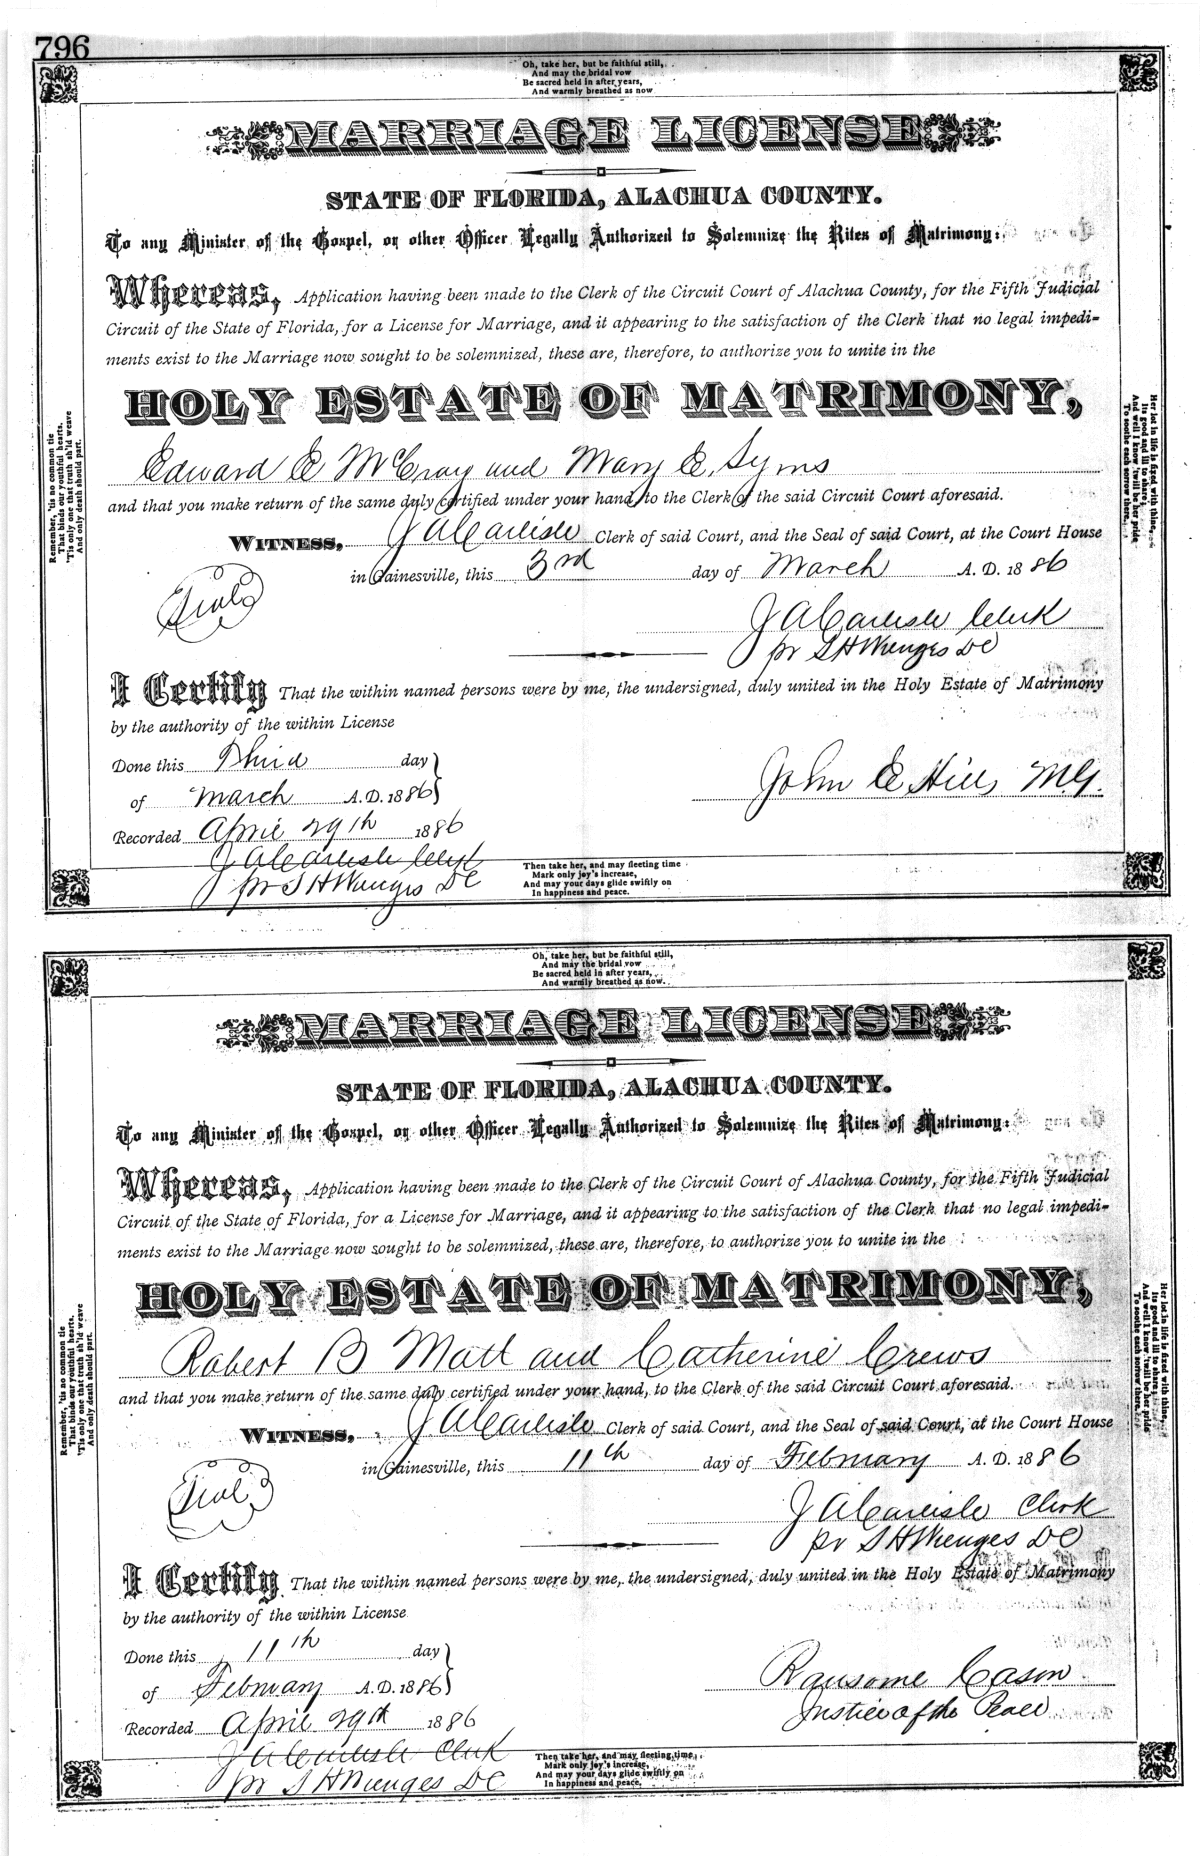 796
Oh, take her, but be faithful still,
And may the bridal vow
Be sacred held in after years,
And warmly breathed as now
MARRIAGE LICENSE
STATE OF FLORIDA, ALACHUA COUNTY.
To any Minister of the Gospel, or other Officer Legally Authorized to Solemnize the Rites of Matrimony:
Whereas, Application having been made to the Clerk of the Circuit Court of Alachua County, for the Fifth Judicial
Circuit of the State of Florida, for a License for Marriage, and it appearing to the satisfaction of the Clerk that no legal impedi-
ments exist to the Marriage now sought to be solemnized, these are, therefore, to authorize you to unite in the
HOLY ESTATE OF MATRIMONY,
Edward E McCray and Mary E. Syms
and that you make return of the same duly certified under your hand, to the Clerk of the said Circuit Court aforesaid.
WITNESS, J A Carlisle Clerk of said Court, and the Seal of said Court, at the Court House
in Gainesville, this 3rd day of March A. D. 1886
Seal
J A Carlisle Clerk
pr S H Wienges DC
I Certify That the within named persons were by me, the undersigned, duly united in the Holy Estate of Matrimony
by the authority of the within License
Done this Third day
of March A.D. 1886
John E Hill, M.G.
Recorded April 29th 1886
J A Carlisle Clerk
pr S H Wienges DC
Remember, 'tis no common tie
That binds our youthful hearts,
'Tis only one that truth sh'ld weave
And only death should part.
Her lot in life is fixed with thine,
Its good and ill to share;
And well I know 'twill be her pride
To soothe each sorrow there.
Then take her, and may fleeting time
Mark only joy's increase,
And may your days glide swiftly on
In happiness and peace.
Oh, take her, but be faithful still,
And may the bridal vow
Be sacred held in after years,
And warmly breathed as now.
MARRIAGE LICENSE
STATE OF FLORIDA, ALACHUA COUNTY.
To any Minister of the Gospel, or other Officer Legally Authorized to Solemnize the Rites of Matrimony:
Whereas, Application having been made to the Clerk of the Circuit Court of Alachua County, for the Fifth Judicial
Circuit of the State of Florida, for a License for Marriage, and it appearing to the satisfaction of the Clerk that no legal impedi-
ments exist to the Marriage now sought to be solemnized, these are, therefore, to authorize you to unite in the
HOLY ESTATE OF MATRIMONY,
Robert B Matt and Catherine Crews
and that you make return of the same duly certified under your hand, to the Clerk of the said Circuit Court aforesaid.
WITNESS, J A Carlisle Clerk of said Court, and the Seal of said Court, at the Court House
in Gainesville, this 11th day of February A. D. 1886
Seal
J A Carlisle Clerk
pr S H Wienges DC
I Certify That the within named persons were by me, the undersigned, duly united in the Holy Estate of Matrimony
by the authority of the within License
Done this 11th day
of February A.D. 1886
Ransome Cason
Justice of the Peace
Recorded April 29th 1886
J A Carlisle Clerk
pr S H Wienges DC
Remember, 'tis no common tie
That binds our youthful hearts,
'Tis only one that truth sh'ld weave
And only death should part.
Her lot in life is fixed with thine,
Its good and ill to share;
And well I know 'twill be her pride
To soothe each sorrow there.
Then take her, and may fleeting time
Mark only joy's increase,
And may your days glide swiftly on
In happiness and peace.